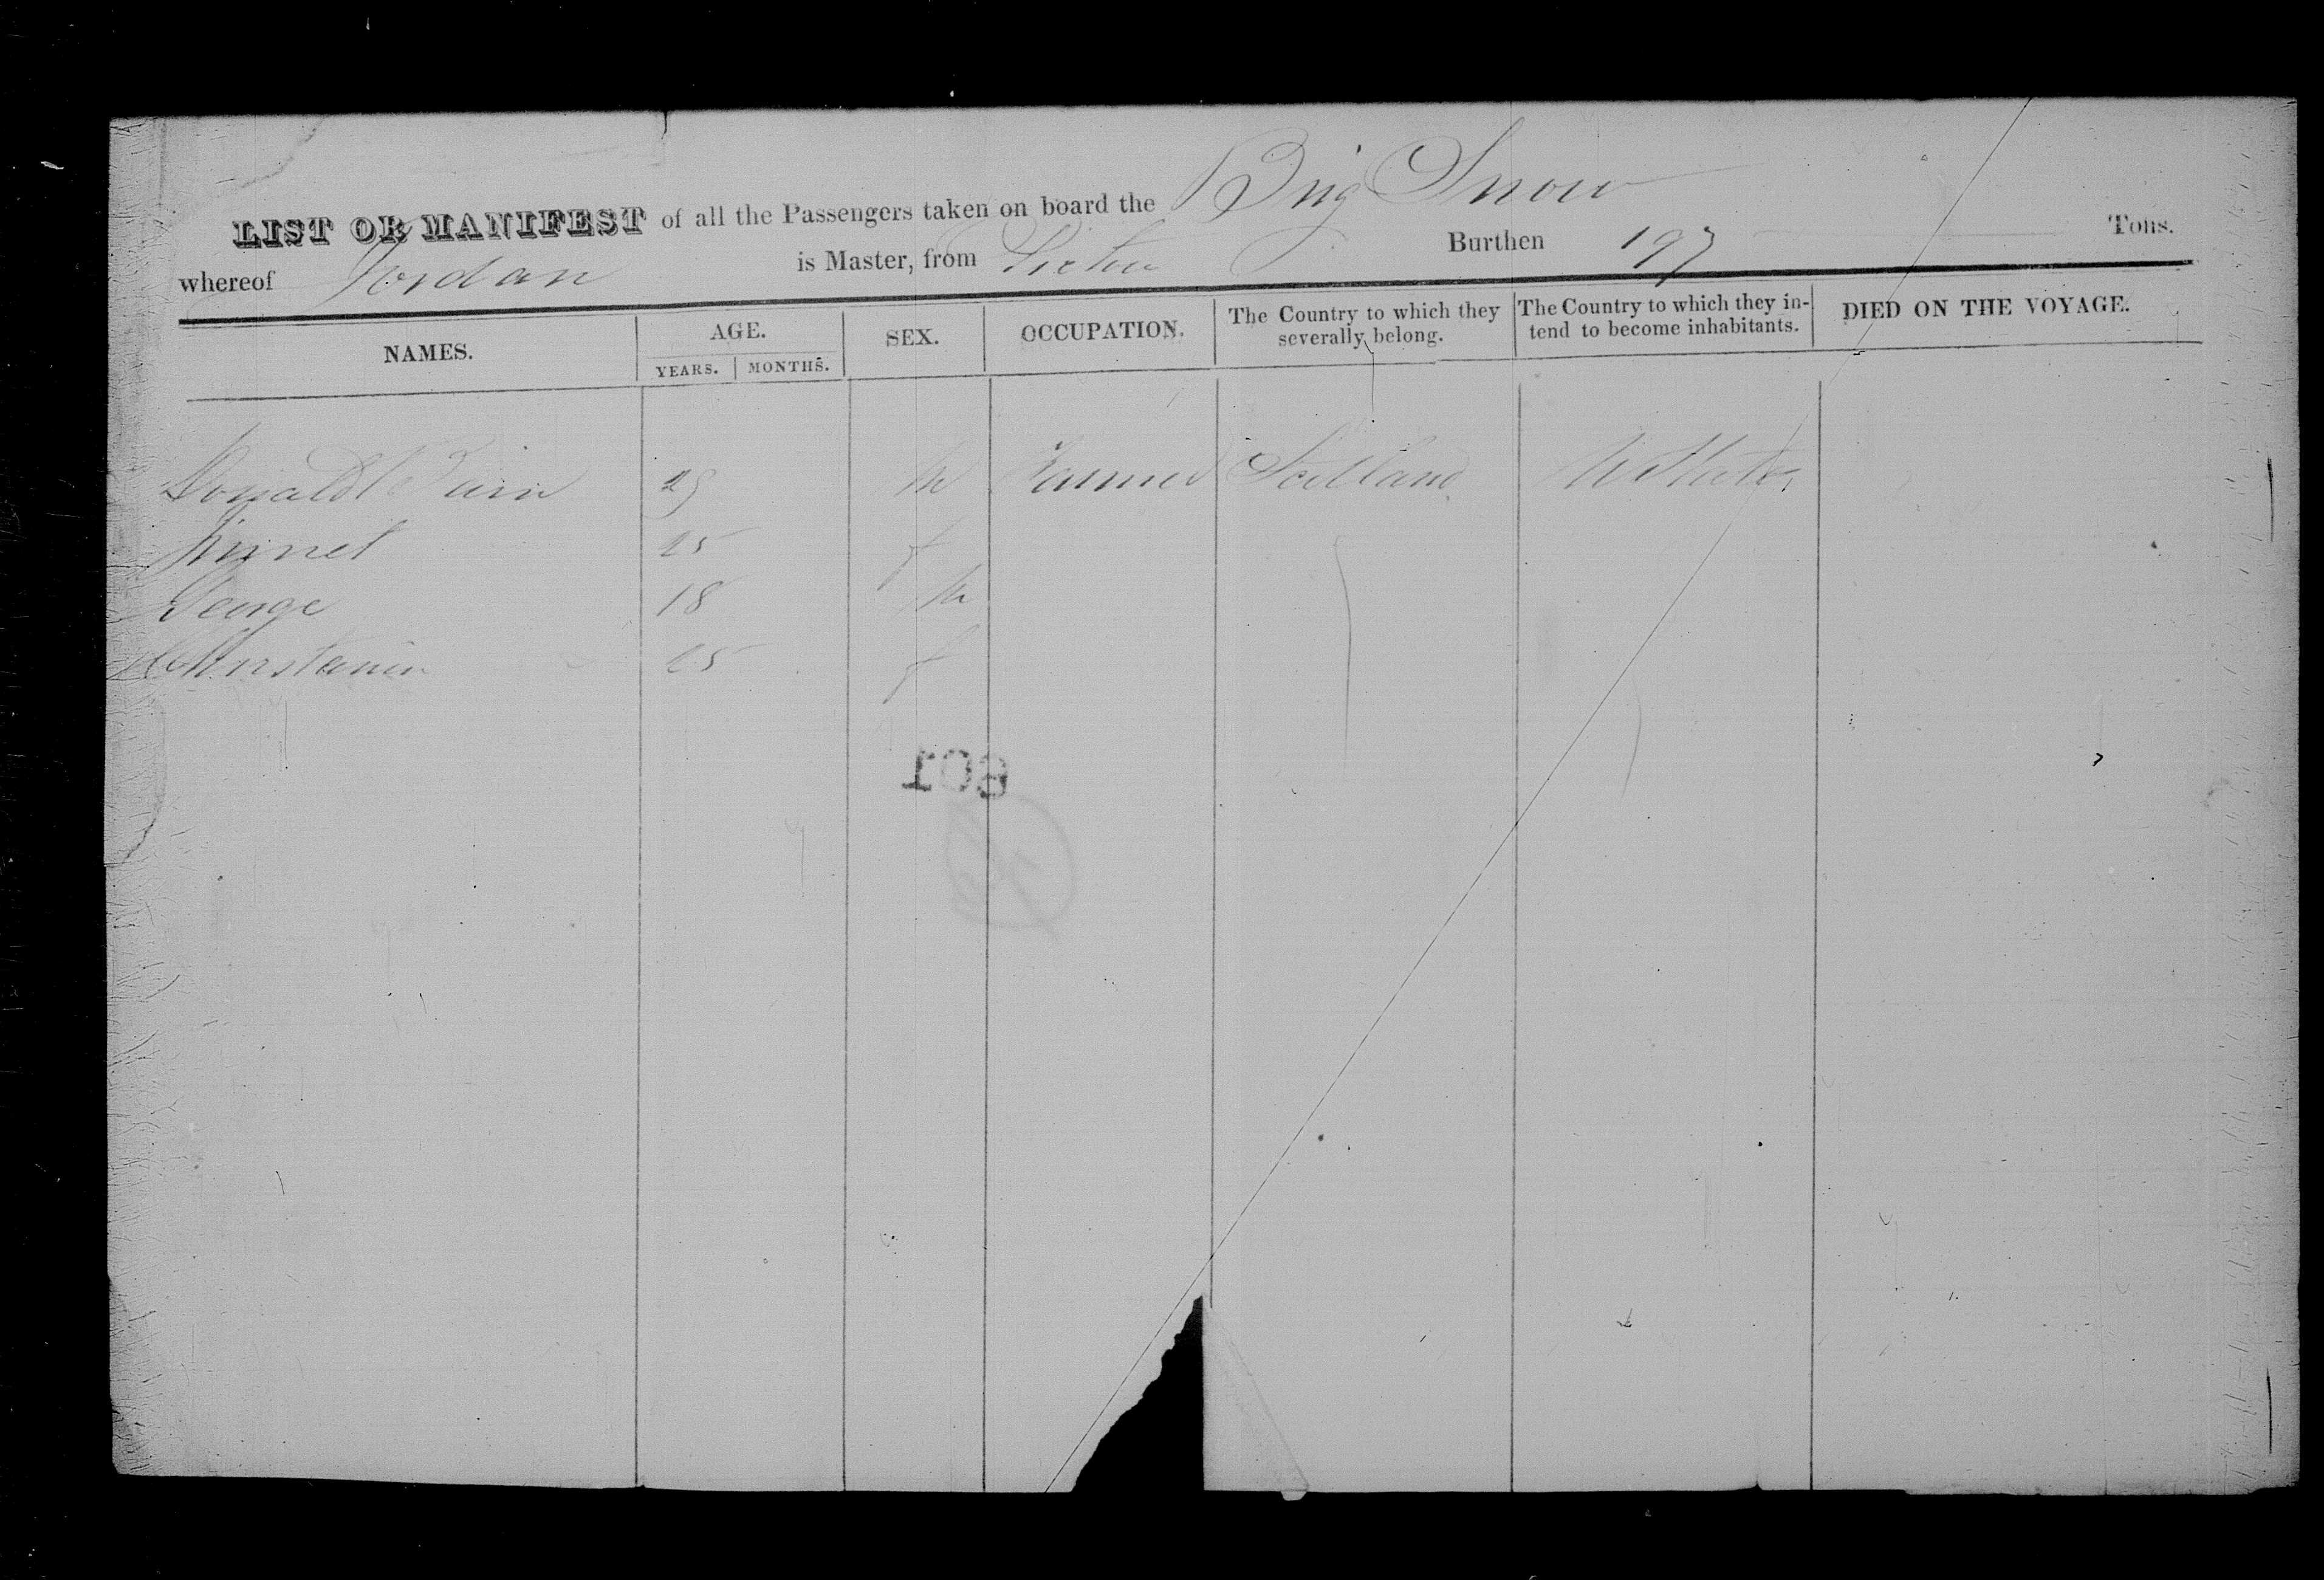 LIST OR MANIFEST of all the Passengers taken on board the Brig Snow
whereof Jordan is Master, from Pictou Burthen 197 Tons.
NAMES. AGE. SEX. OCCUPATION. The Country to which they severally belong. The Country to which they intend to become inhabitants. DIED ON THE VOYAGE.
YEARS. MONTHS.
Donald 29 M Farmer Scotland U States
25 f
George 18 M
25 f
109